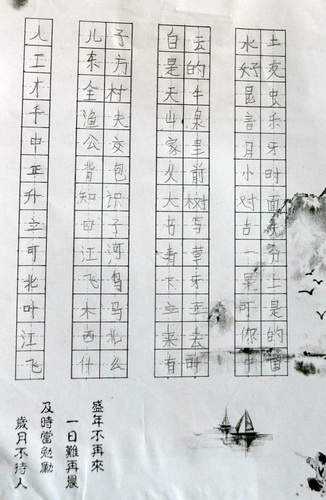 人 儿子 白云 水土
工 东方 是的 好亮
才 全村 天牛 昆虫
渔夫 山泉 音乐
中 公交 家里 月牙
正 背包 火前 小时
升 知识 大树 对面
立 子 书写 古
可 江河 青草 一
北 飞鸟 牙 上
叶 木马 立 可是
江 西北 来去 你的
飞 什么 有时 面
盛年不再來
一日難再晨
及時當勉勵
歲月不待人